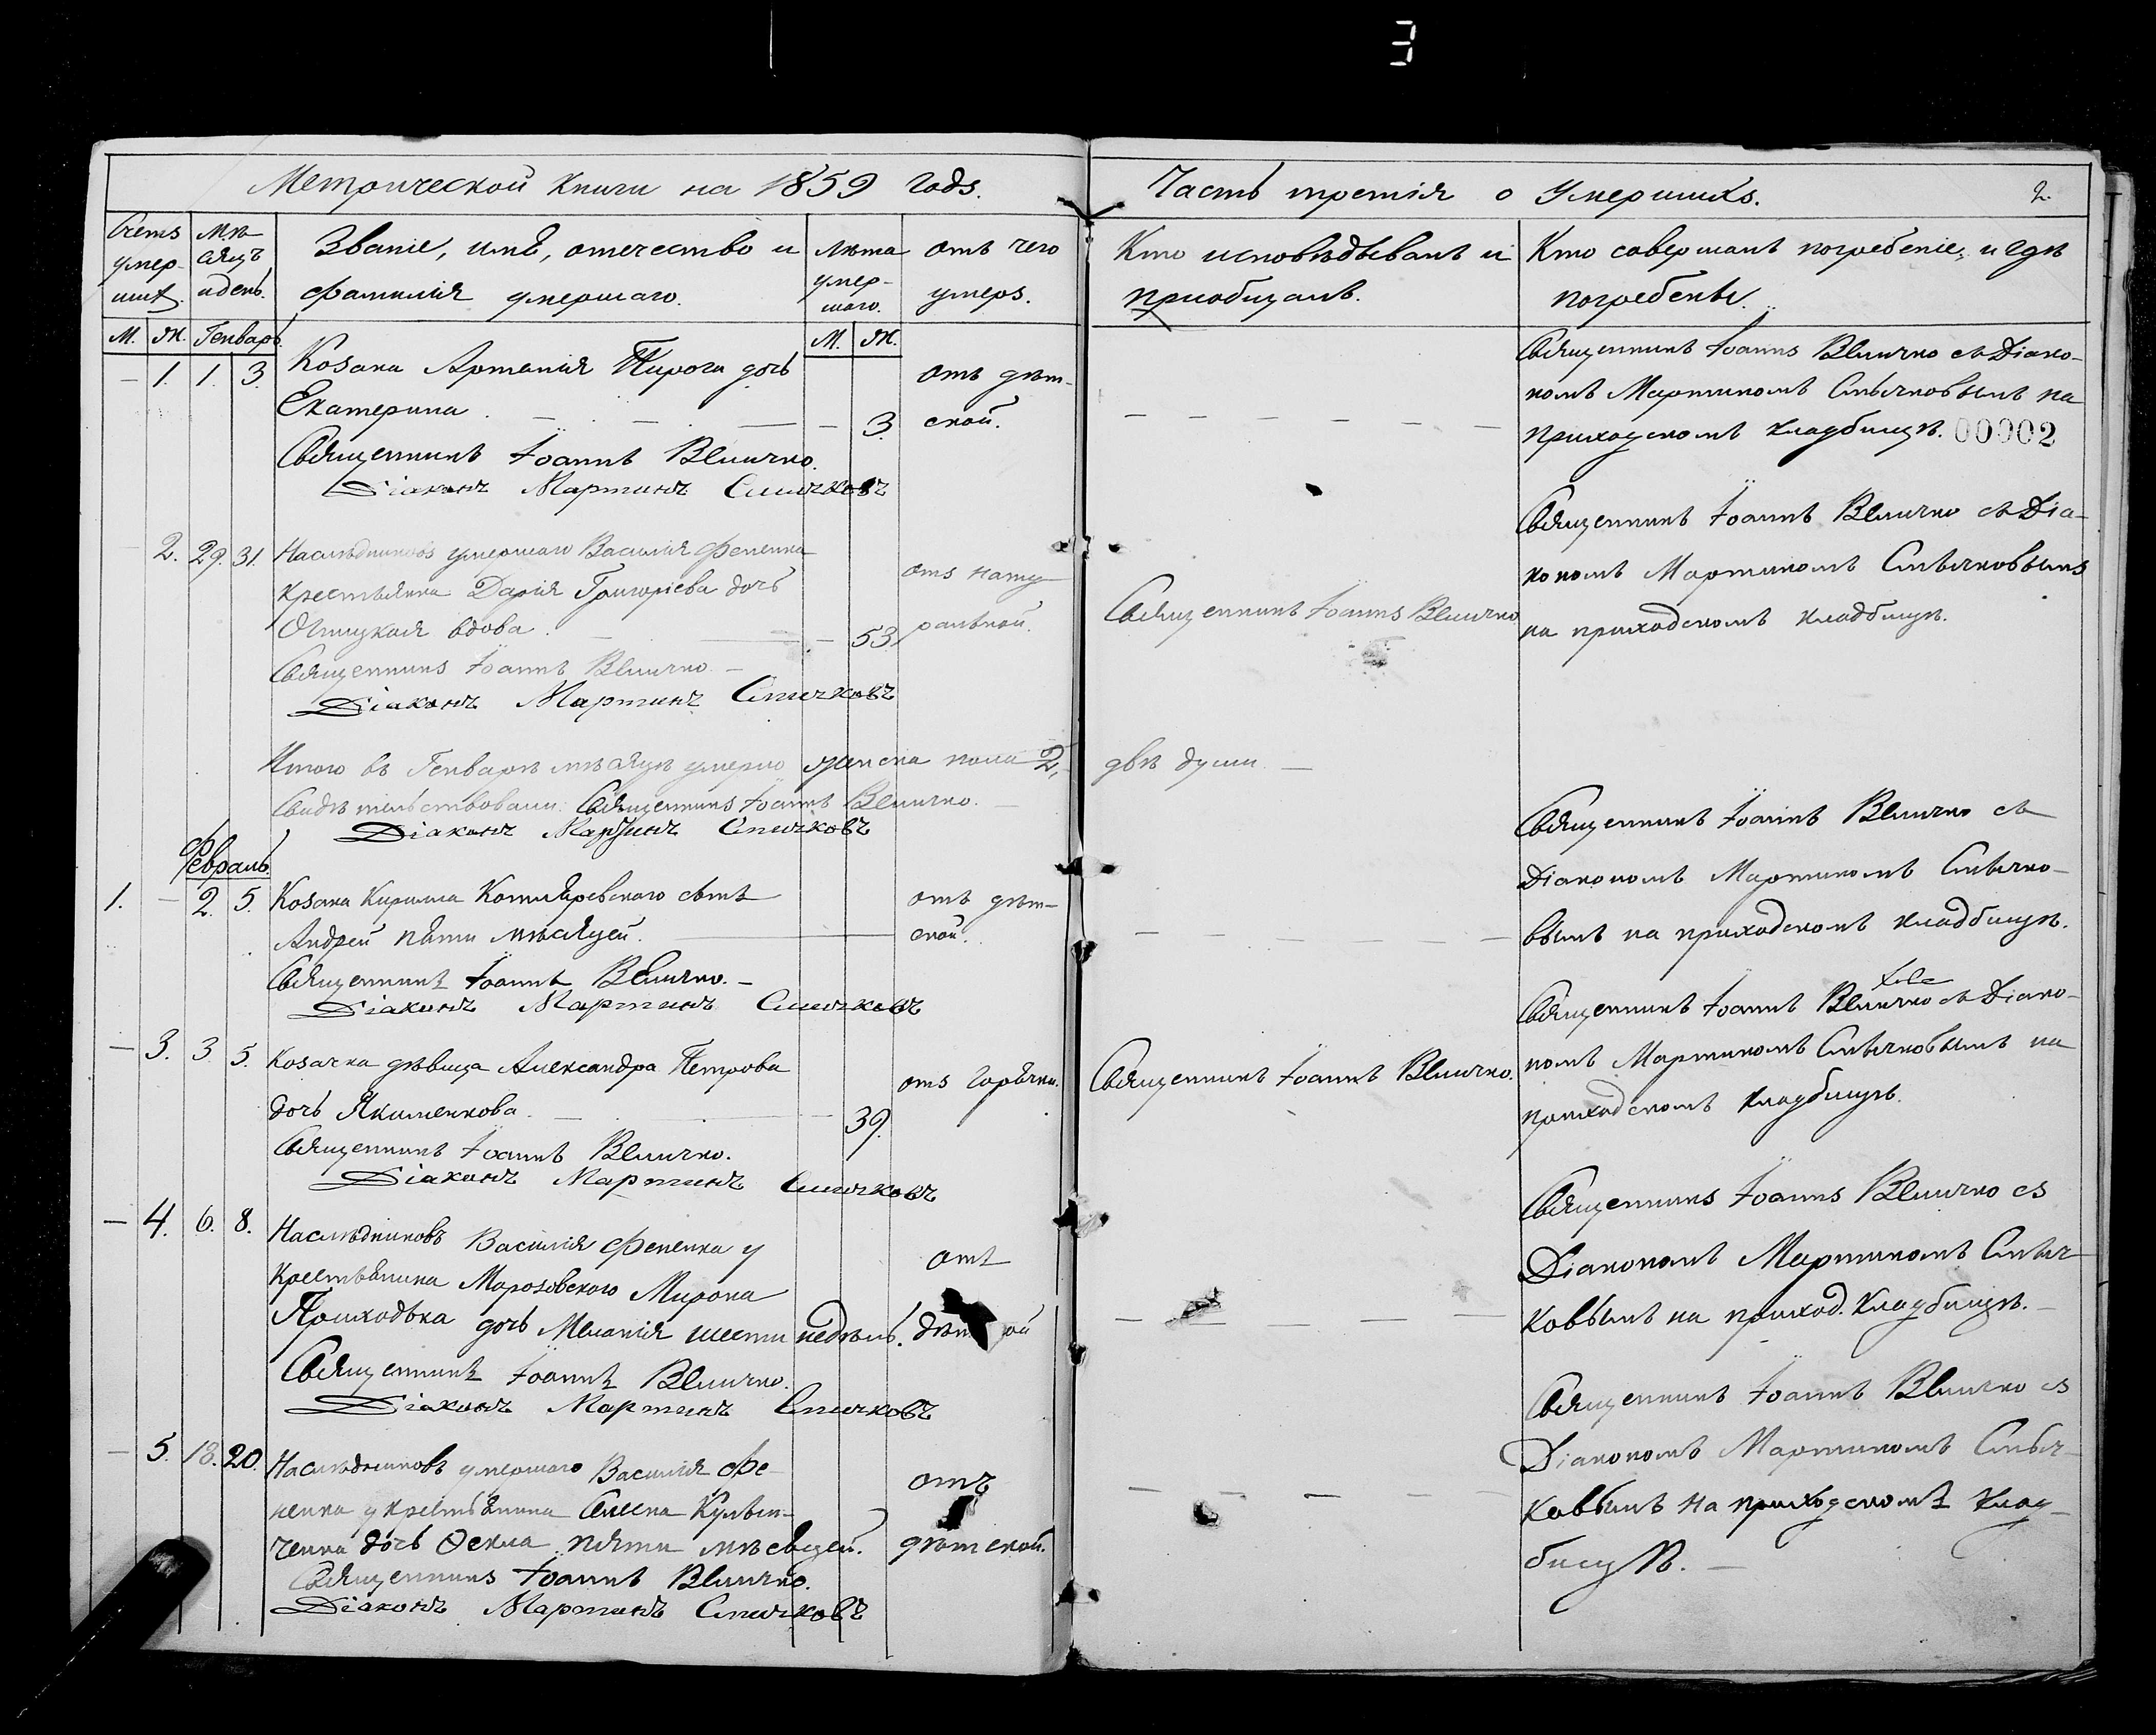 3
Метрической Книги на 1859 годъ.
Часть третія о Умершихъ.
2.
Счетъ умер-шихъ.
Мѣ-сяцъ и день.
Званіе, имя, отчество и
фамилія умершаго.
Лѣта умер-шаго.
отъ чего
умеръ.
Кто исповѣдывалъ и
пріобщалъ.
Кто совершалъ погребеніе, и гдѣ
погребены.
М. Ж. Генварь.
М. Ж.
— 1. 1. 3.
Козака Артемія Пирога дочь
Екатерина — 3.
отъ дѣт-
ской.
Священникъ Іоаннъ Величко.
Діаконъ Мартинъ Смычковъ
Священникъ Іоаннъ Величко съ Діако-
номъ Мартиномъ Смычковымъ на
приходскомъ кладбищѣ. 00002
— 2. 29. 31.
Наслѣдниковъ умершаго Василія Фененка
крестьянка Дарія Григоріева дочь
вдова. — 53
отъ нату
ральной.
Священникъ Іоаннъ Величко —
Діаконъ Мартинъ Смычковъ
Священникъ Іоаннъ Величко
Священникъ Іоаннъ Величко съ Діа-
кономъ Мартиномъ Смычковымъ
на приходскомъ кладбищѣ.
Итого въ Генварѣ мѣсяцѣ умерло женска пола 2, двѣ души. —
Свидѣтельствовали: Священникъ Іоаннъ Величко. —
Діаконъ Мартинъ Смычковъ
Февраль.
1. — 2. 5.
Козака Кирилла Котляревского сынъ
Андрей пяти мѣсяцей.
отъ дѣт-
ской.
Священникъ Іоаннъ Величко. —
Діаконъ Мартинъ Смычковъ
Священникъ Іоаннъ Величко съ
Діакономъ Мартиномъ Смычко-
вымъ на приходскомъ кладбищѣ.
— 3. 3 5.
Козачка дѣвица Александра Петрова
дочь Якименкова. — 39.
отъ горячки.
Священникъ Іоаннъ Величко.
Діаконъ Мартинъ Смычковъ
Священникъ Іоаннъ Величко.
Священникъ Іоаннъ Величко съ Діако-
номъ Мартиномъ Смычковымъ на
приходскомъ кладбищѣ.
— 4. 6. 8.
Наслѣдниковъ Василія Фененка у
крестьянина Морозовского Мирона
Приходька дочь Меланія шести недѣль.
отъ
дѣт ой
Священникъ Іоаннъ Величко.
Діаконъ Мартинъ Смычковъ
Священникъ Іоаннъ Величко съ
Діакономъ Мартиномъ Смыч-
ковымъ на приход. кладбищѣ. —
— 5. 18. 20.
Наслѣдниковъ умершаго Василія Фе-
ненка у крестьянина
дочь Ѳекла пяти мѣсяцей.
отъ
дѣтской.
Священникъ Іоаннъ Величко.
Діаконъ Мартинъ Смычковъ
Священникъ Іоаннъ Величко съ
Діакономъ Мартиномъ Смыч-
ковымъ на приходскомъ клад-
бищѣ. —